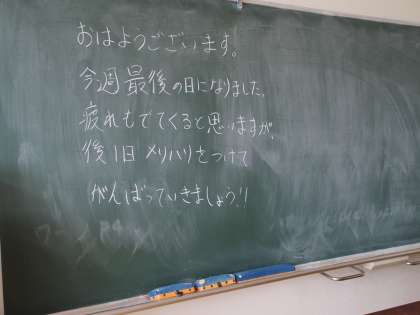 おはようございます。
今週最後の日になりました。
疲れもでてくると思いますが、
後1日メリハリをつけて
がんばっていきましょう!!